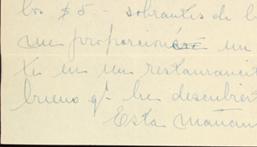 los $5 - sobrantes de l
me proporcioné un
te en un restaurancit
bueno q' he descubiert
Esta mañan